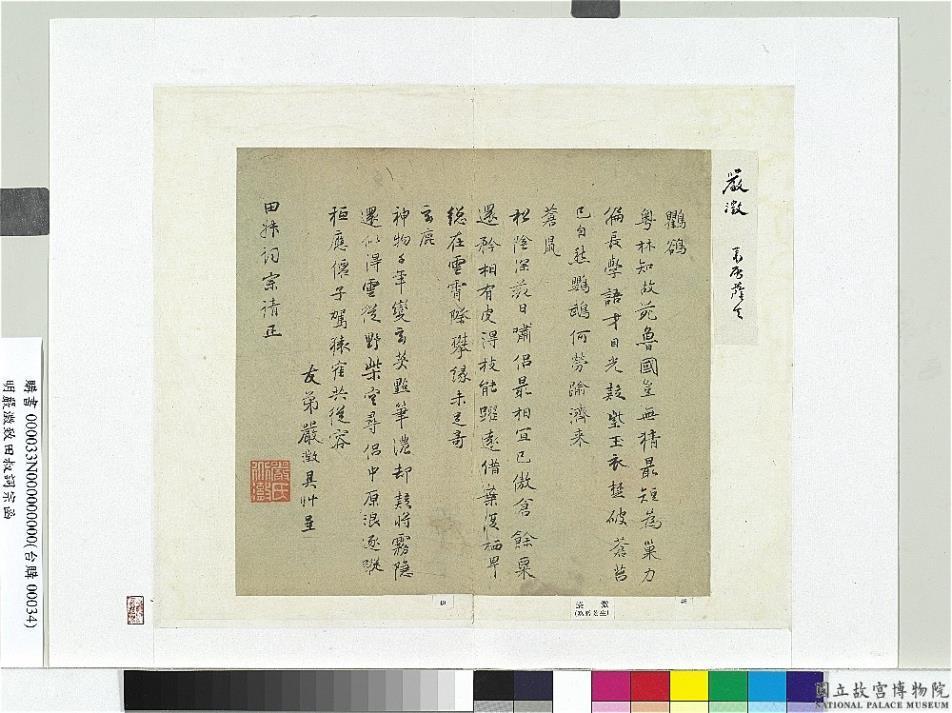 嚴澂
鸜鵒
粵林知故苑魯國豈無猜最短為巢力
偏長學語才目光疑紫玉衣楚破蒼苔
已自熊鸚鵡何勞踰濟來
蒼鼠
松陰深蔽日嘯侶最相宜已傲倉餘粟
還矜相有皮得枝能躍遠借葉復栖卑
総在雲霄際攀緣未足奇
玄鹿
神物千年變玄英點筆濃却疑將霧隱
還似得雲從野柴空尋侶中原浪逐蹤
秖應僊子駕猿寉共從容
友弟嚴澂具艸呈
田叔詞宗請正
嚴氏
購書 000033N000000000(台購 00034)
明嚴澂致田叔詞宗函
國立故宮博物院
NATIONAL PALACE MUSEUM